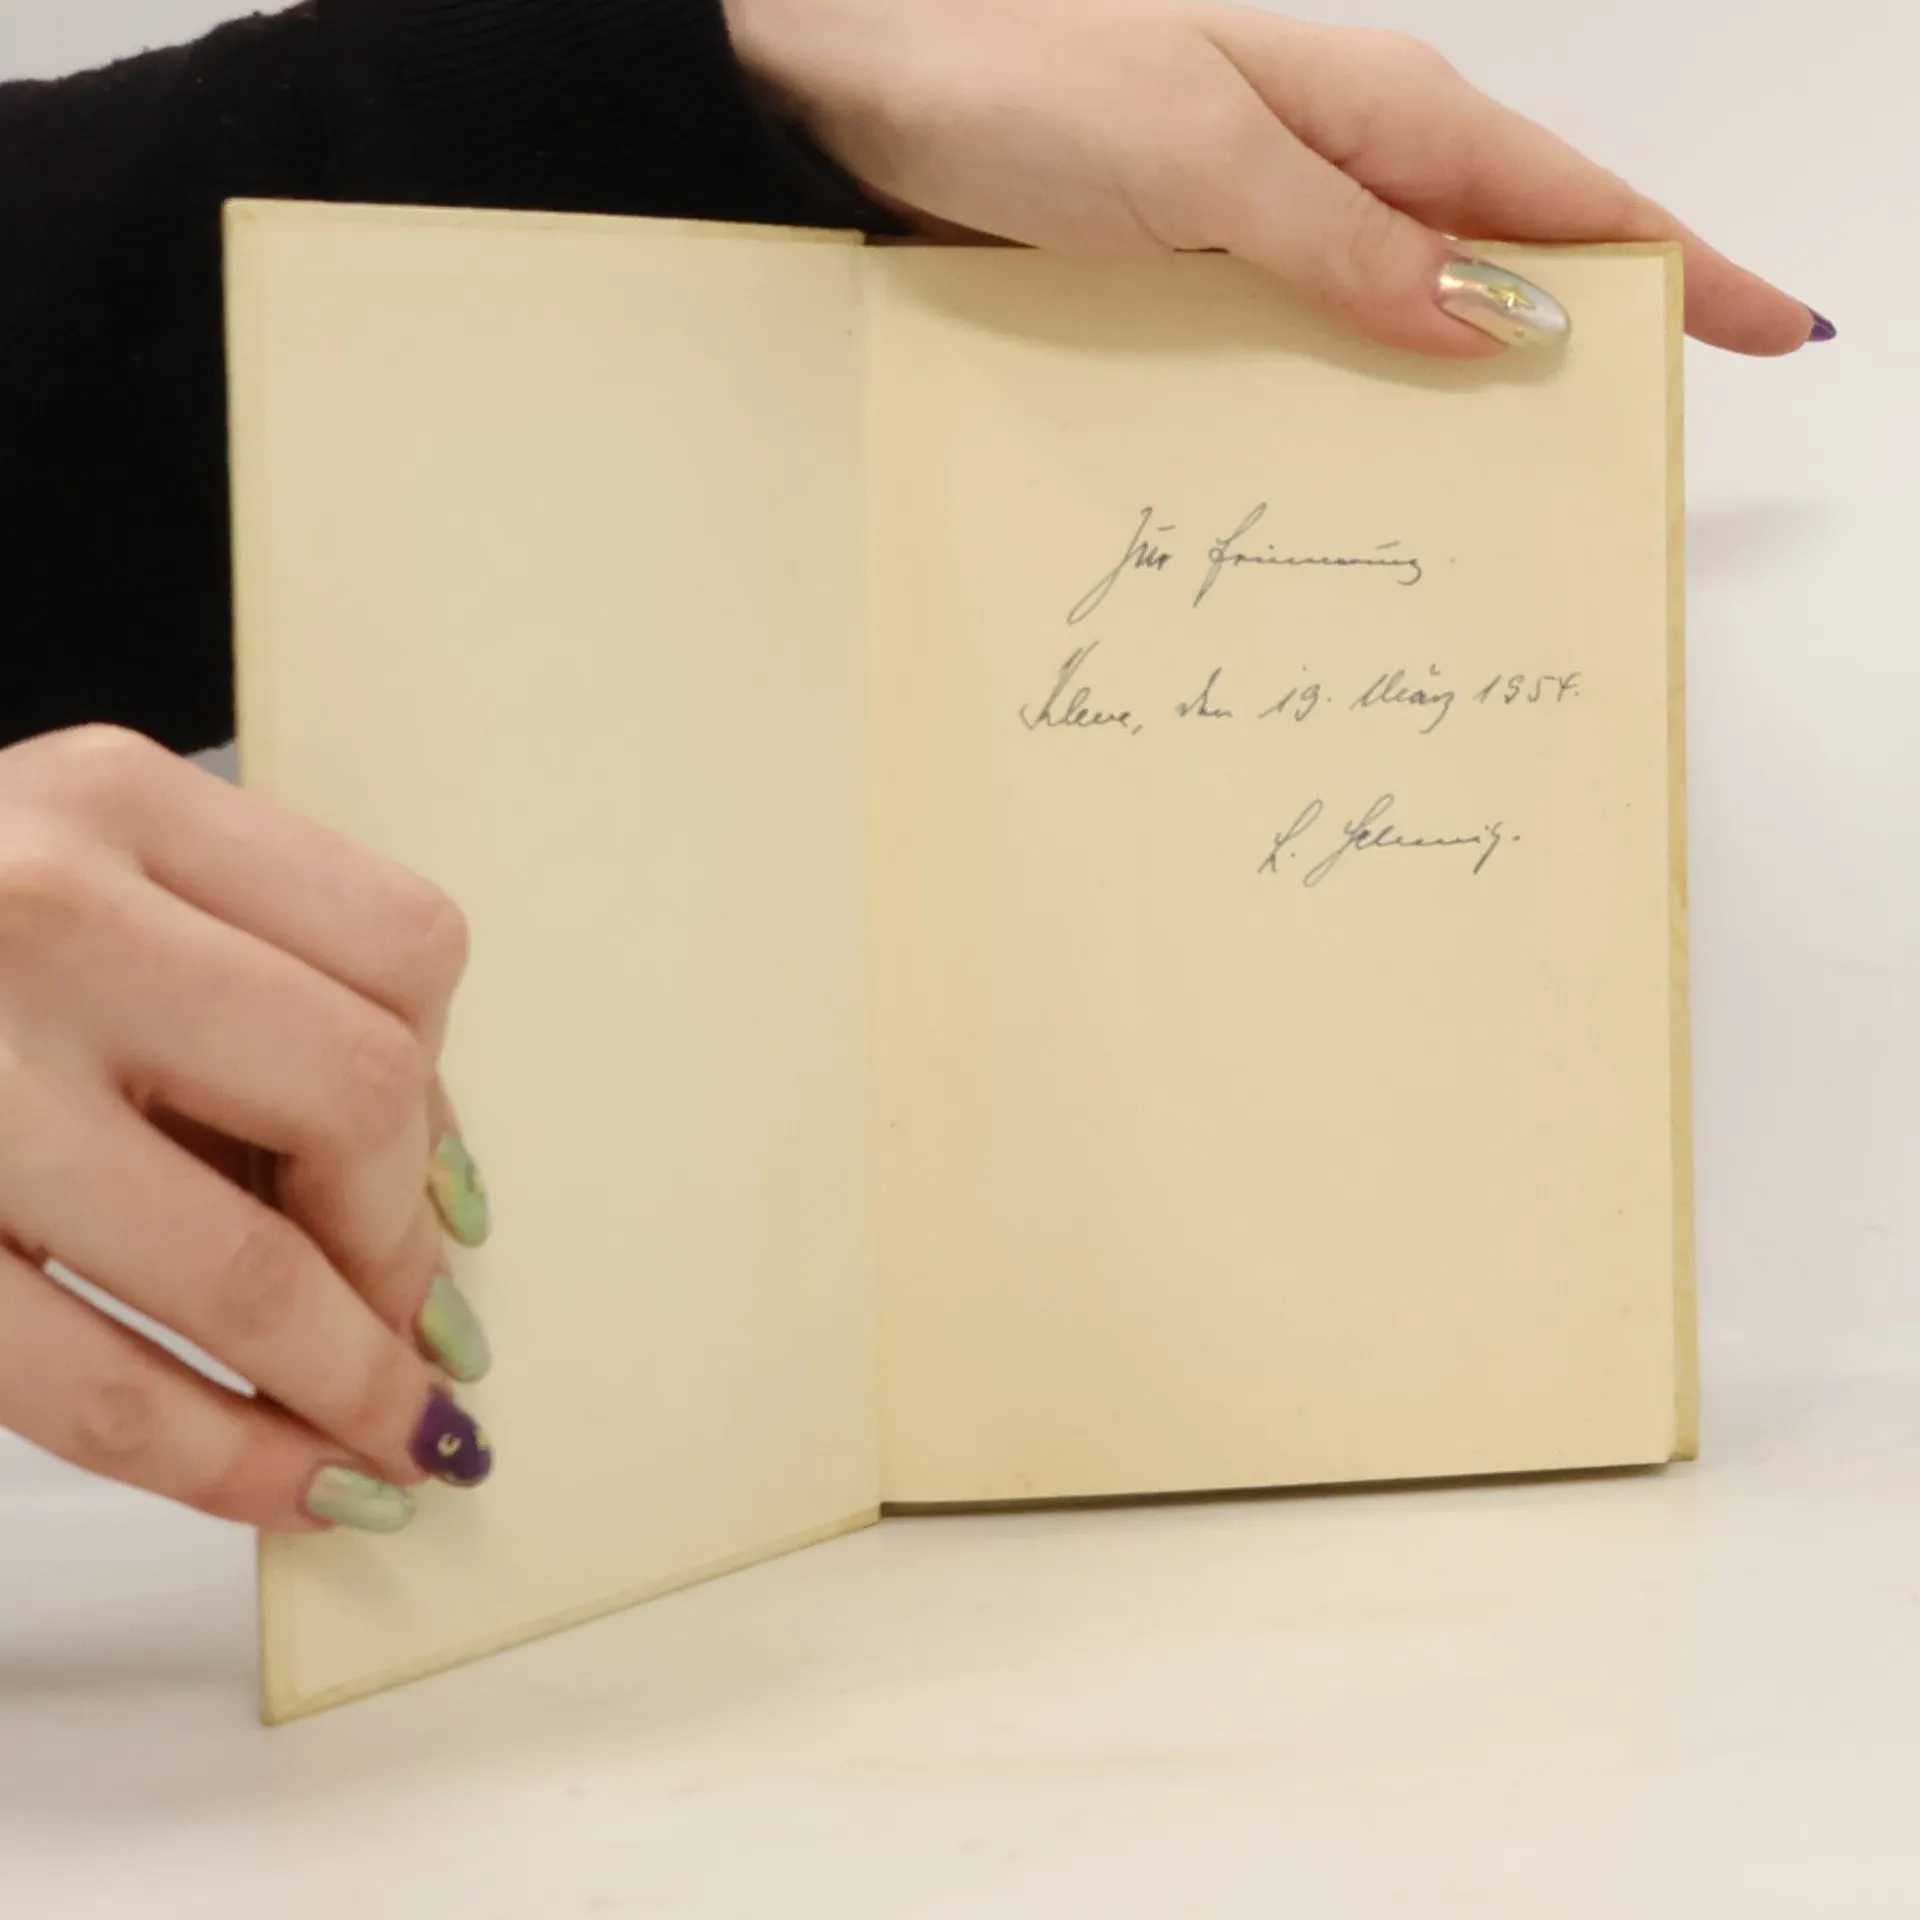 Zur Erinnerung.
Kleve, den 19. März 1954.